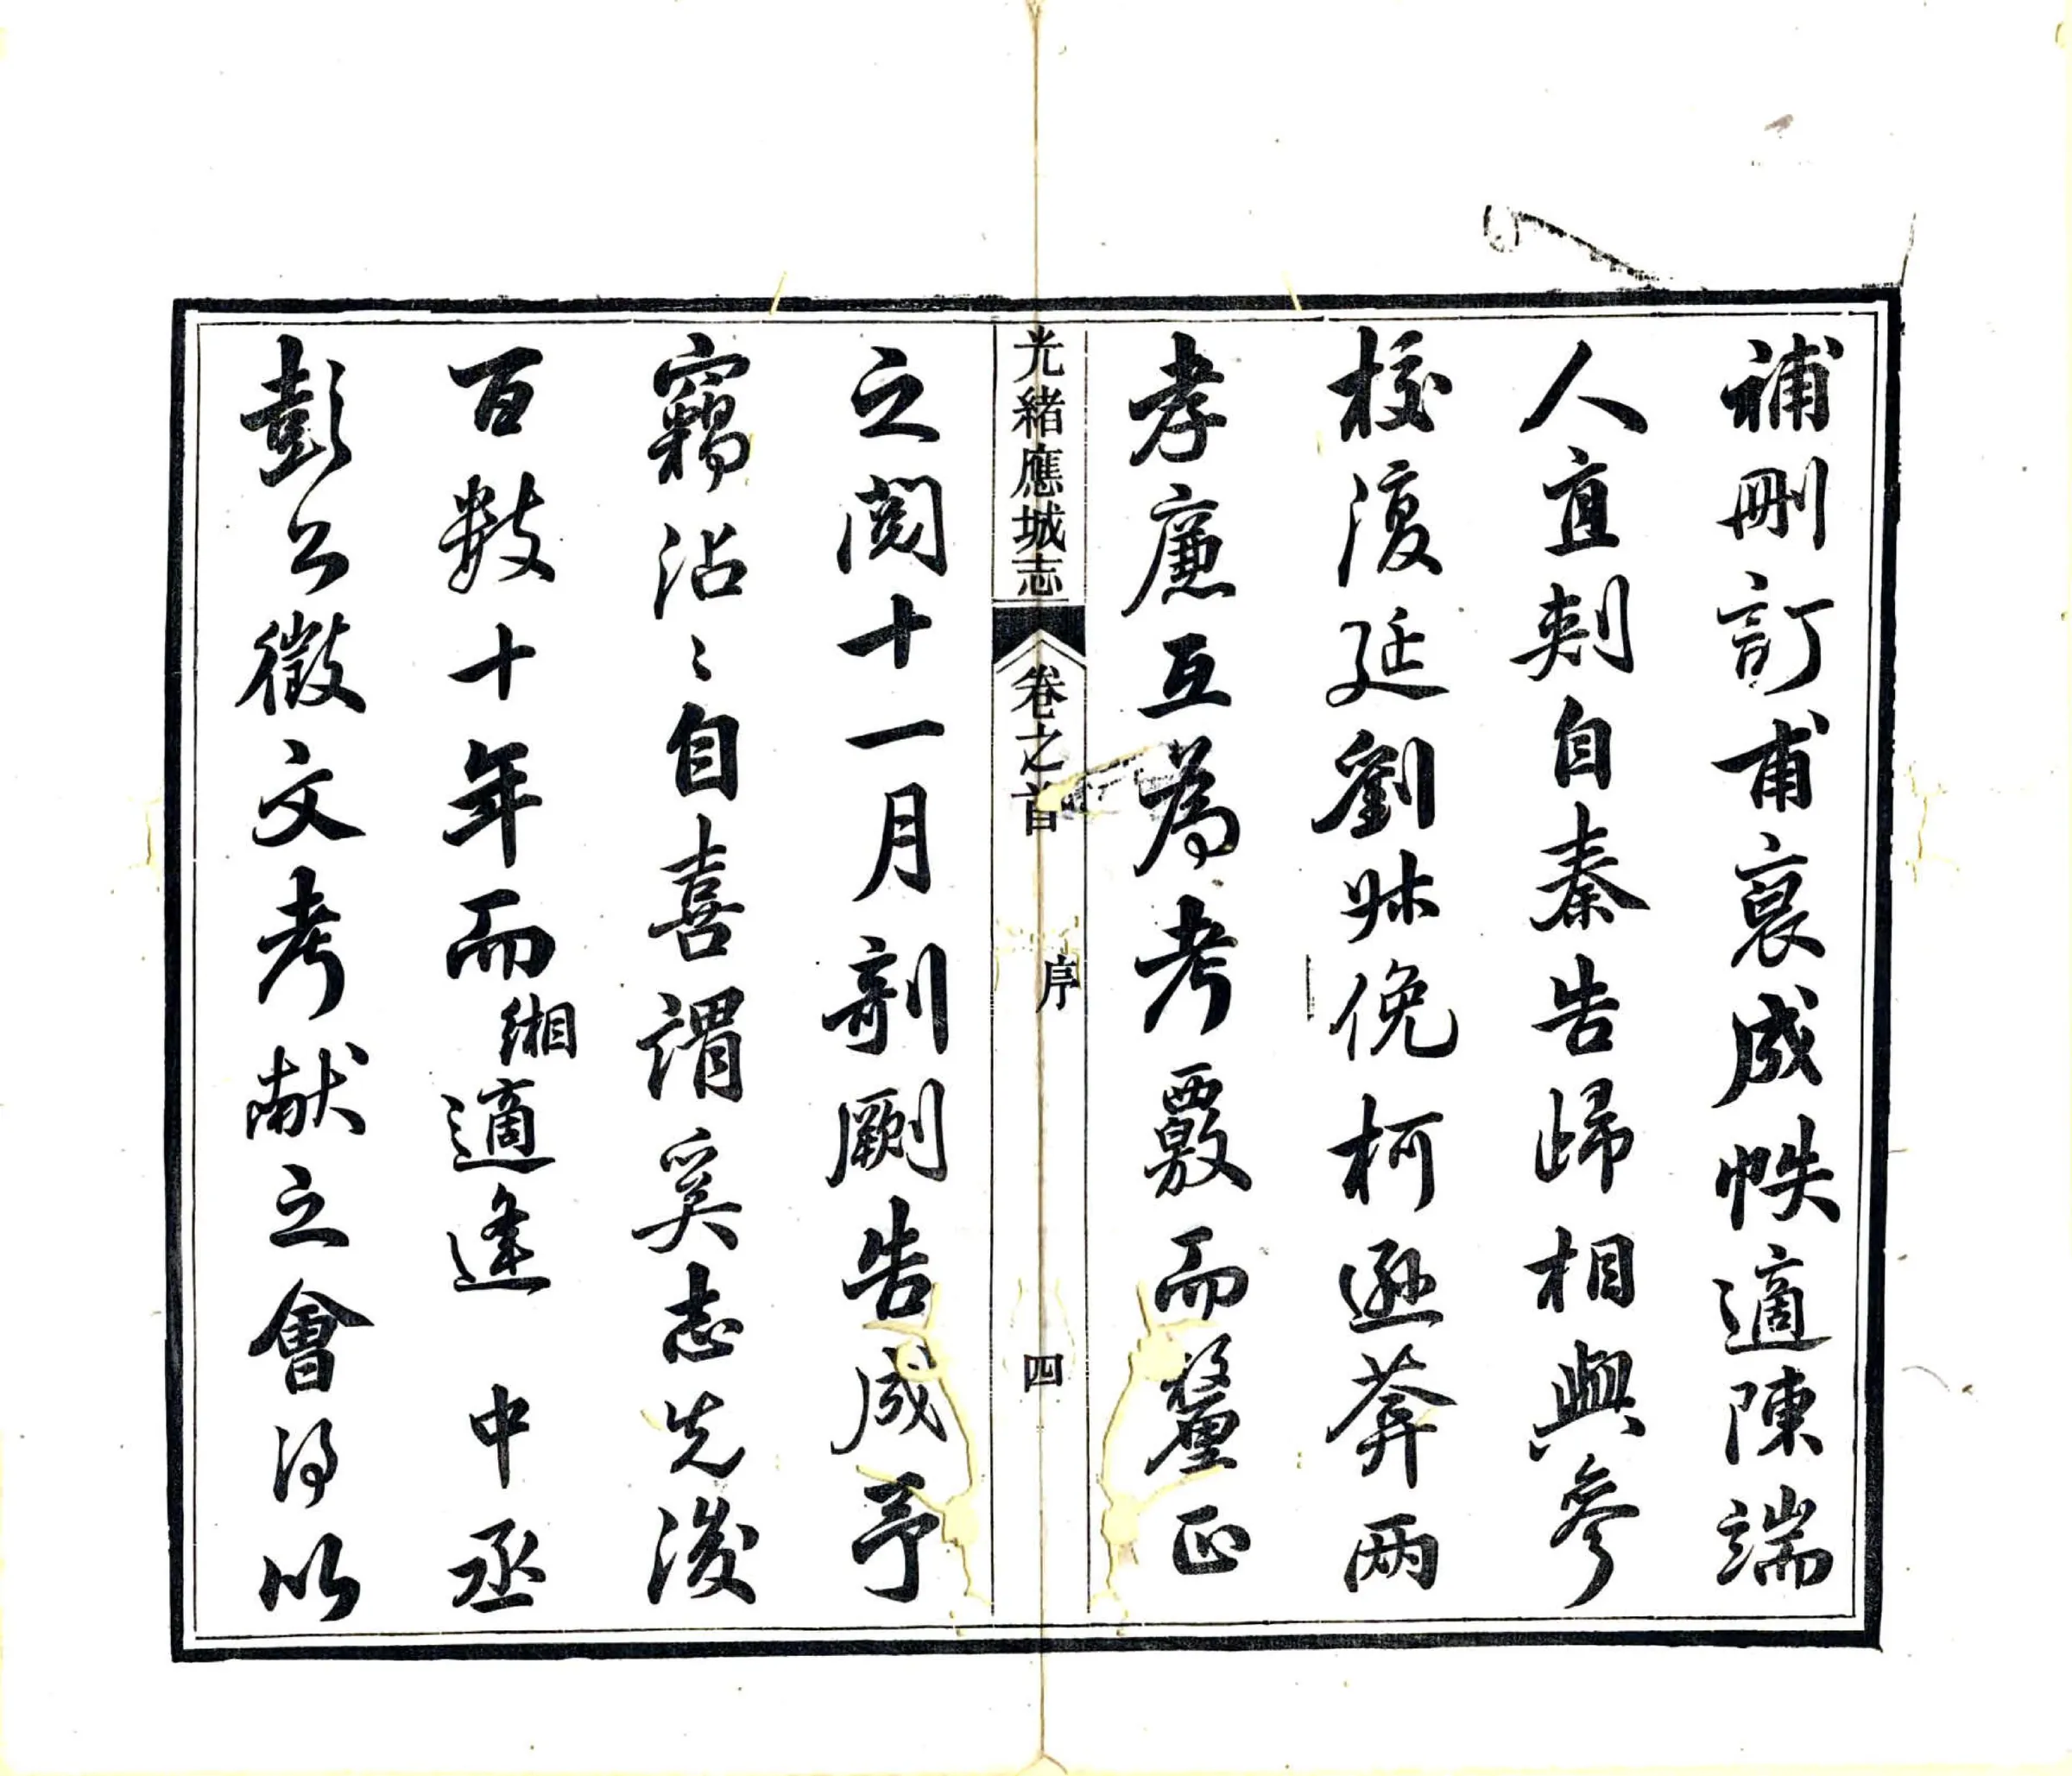 補刪訂甫裒成帙適陳端
人直刺自秦告歸相與參
校復延劉叔俛柯遜菴兩
孝廉互為考覈而釐正
光緒應城志
卷之首
序
四
之閱十一月剞劂告成予
竊沾〻自喜謂奚志先後
百數十年而緗適逢 中丞
彭公徵文考献之會得以